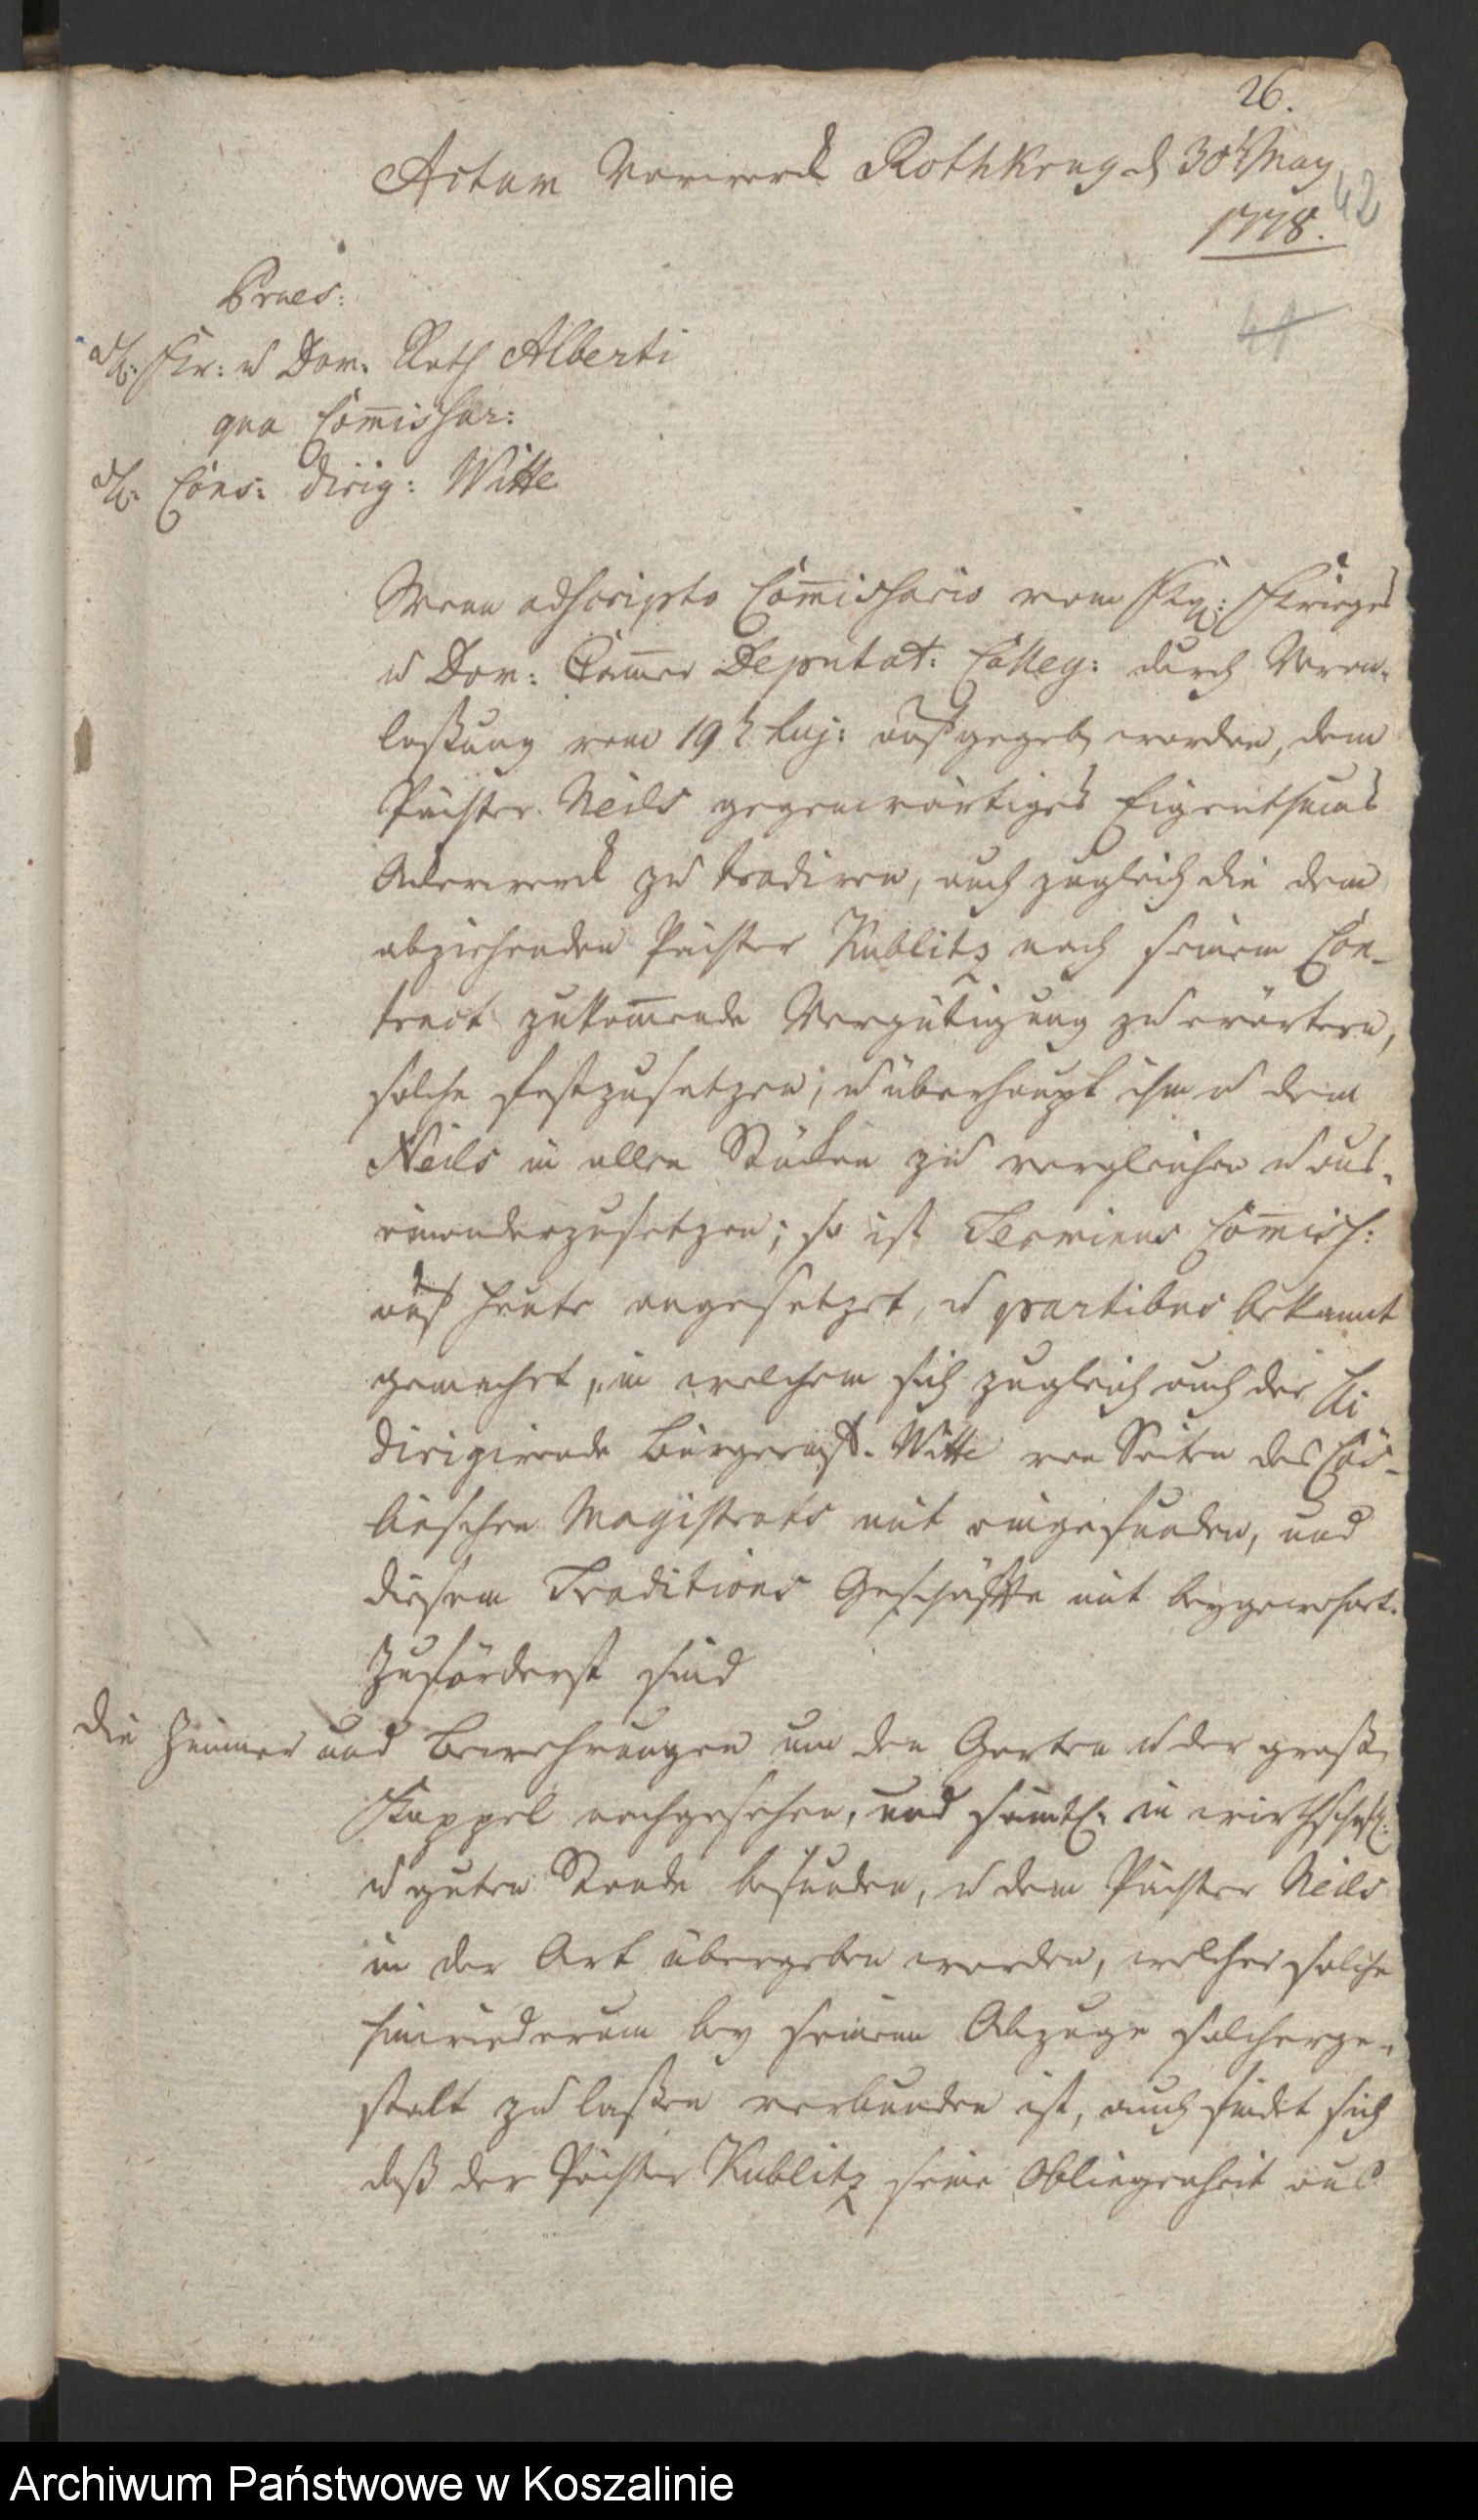 26.
Actum Vorwerck Rothkrug d 30t May
1778.
42
41
Praes:
H: Kr: u Dom. Rath Alberti
qua Com̅issar:
H: Cons: dirig: Witte
Wenn adscripto Com̅issario vom Kgl: Krieges
u Dom: Cam̅er Deputat: Colleg: durch Veran-
laßung vom 19t huj: aufgegeb worden, dem
Pächter Neils gegenwärtiges Eigenthums
Ackerwerck zu tradiren, auch zugleich die dem
abziehenden Pächter Kublitz nach seinem Con-
tract zukom̅ende Vergütigung zu erörtern,
solche festzusetzen; u überhaupt ihn u dem
Neils in allen Stücken zu vergleichen u aus-
einanderzusetzen; so ist Terminus Com̅iss:
auf heute angesetzet, u partibus bekannt
gemacht, in welchem sich zugleich auch der H:
dirigirende Bürgermst. Witte von Seiten des Cös-
linschen Magistrats mit eingefunden, und
diesem Traditions Geschäffte mit beygewohnt.
Zuförderst sind
die Zimmer und Bewehrungen um den Garten u der groß
Koppel nachgesehen, und sämtl. in wirthschaftl:
u guten Stande befunden, u dem Pächter Neils
in der Art übergeben worden, welcher solche
hinwiederum bey seinem Abzuge solcherge-
stalt zu laßen verbunden ist, auch findet sich
daß der Pächter Kublitz seine Obliegenheit aus
Archiwum Państwowe w Koszalinie